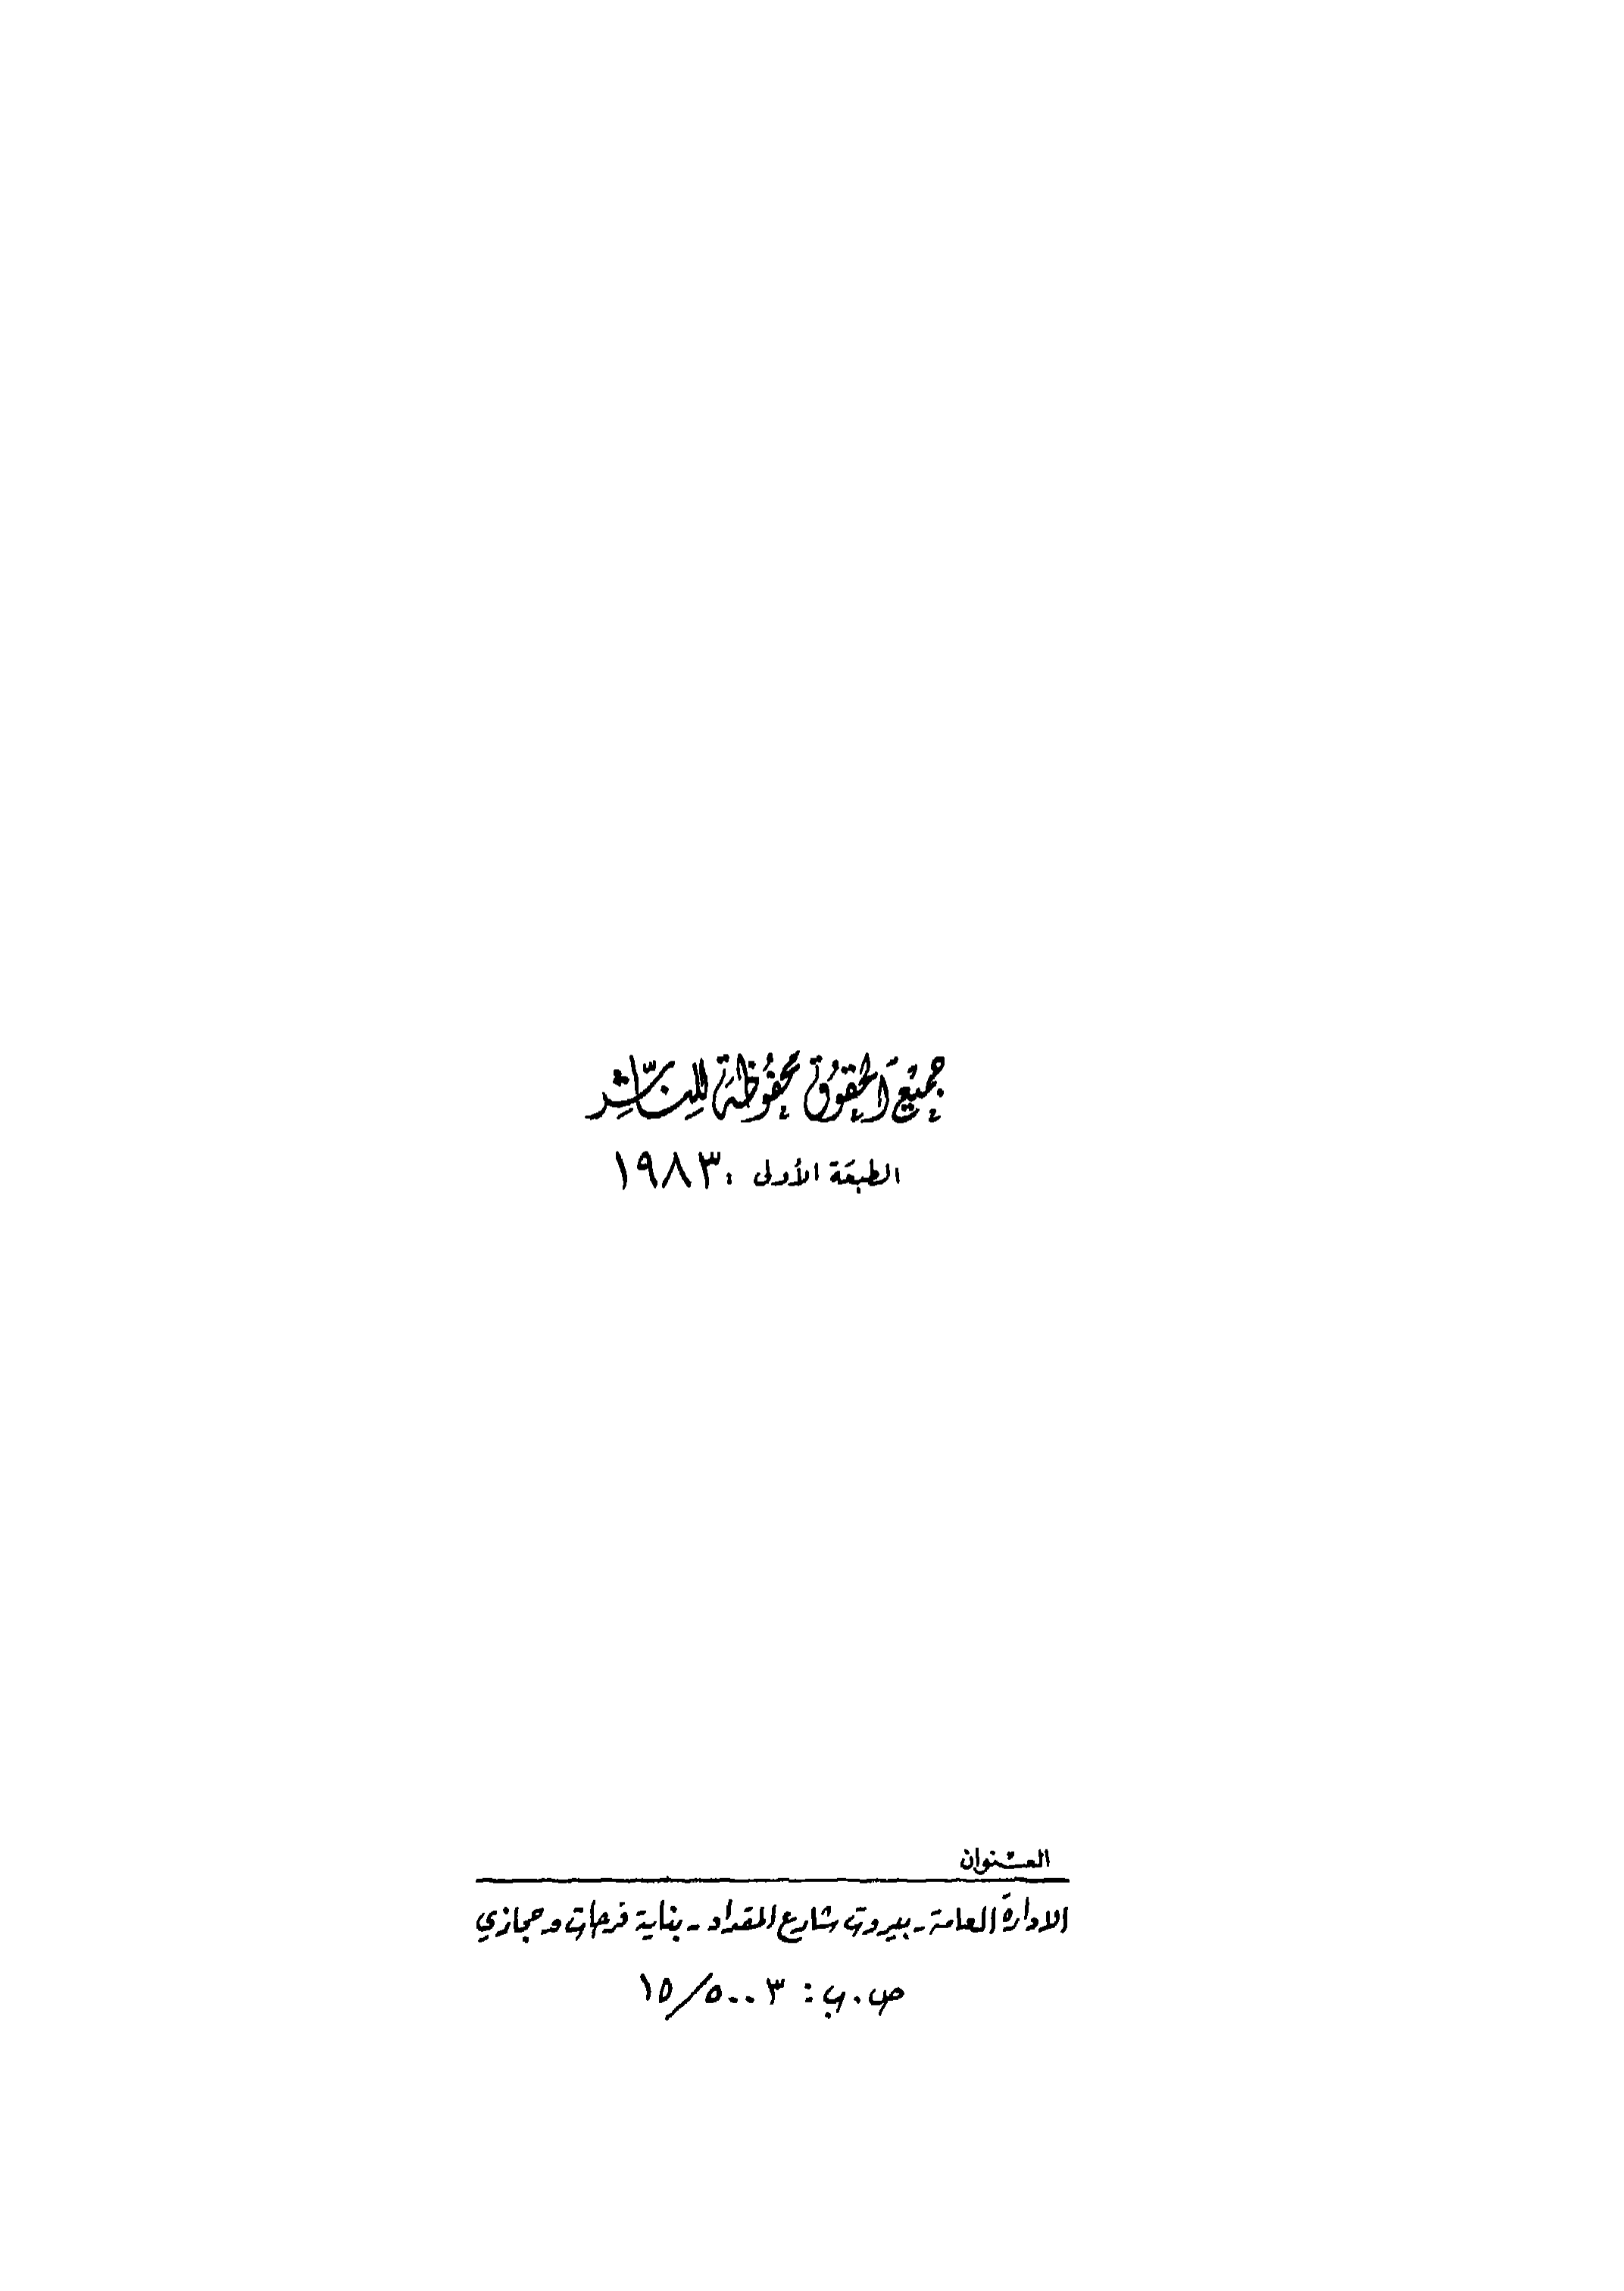 جميع الحقوق محفوظة للناشر
الطبعة الأولى : ١٩٨٣
العنوان
الادارة العامة - بيروت شارع المقداد - بناية فرحات وحجازي
ص . ب : ١٥/٥٠٠٣